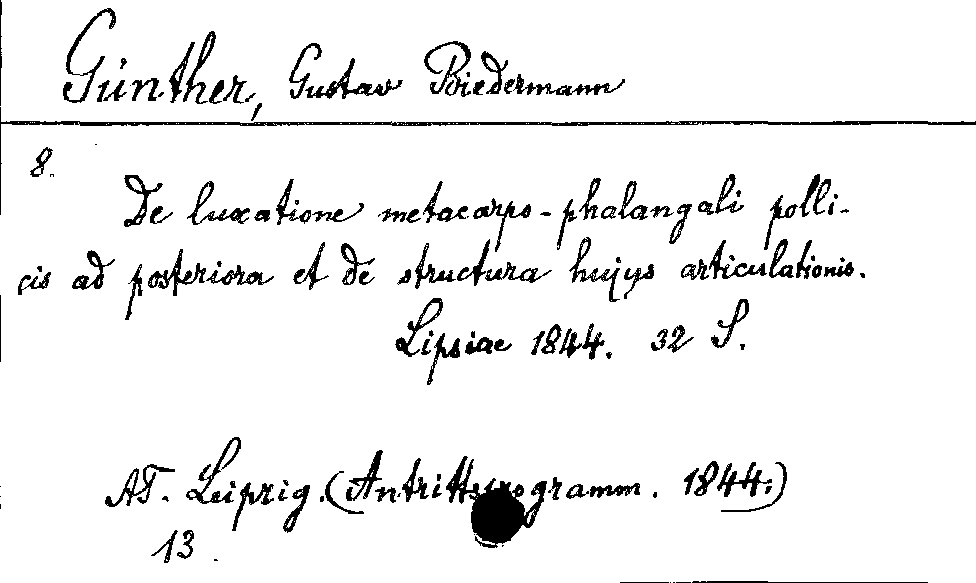 Günther, Gustav Biedermann
8.
De luxatione metacarpo-phalangali polli-
cis ad posteriora et de structura hujus articulationis.
Lipsiae 1844. 32 S.
AT. Leipzig. (Antrittsprogramm. 1844.)
13.